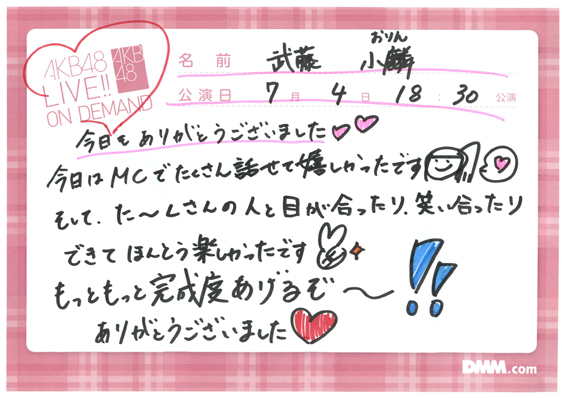 AKB48
LIVE!!
ON DEMAND
AKB
48
名前 武藤 小麟
おりん
公演日 7月 4日 18:30公演
今日もありがとうございました
今日はMCでたくさん話せて嬉しかったです
そして、た〜くさんの人と目が合ったり、笑い合ったり
できてほんとう楽しかったです
もっともっと完成度あげるぞ〜!!
ありがとうございました
DMM.com